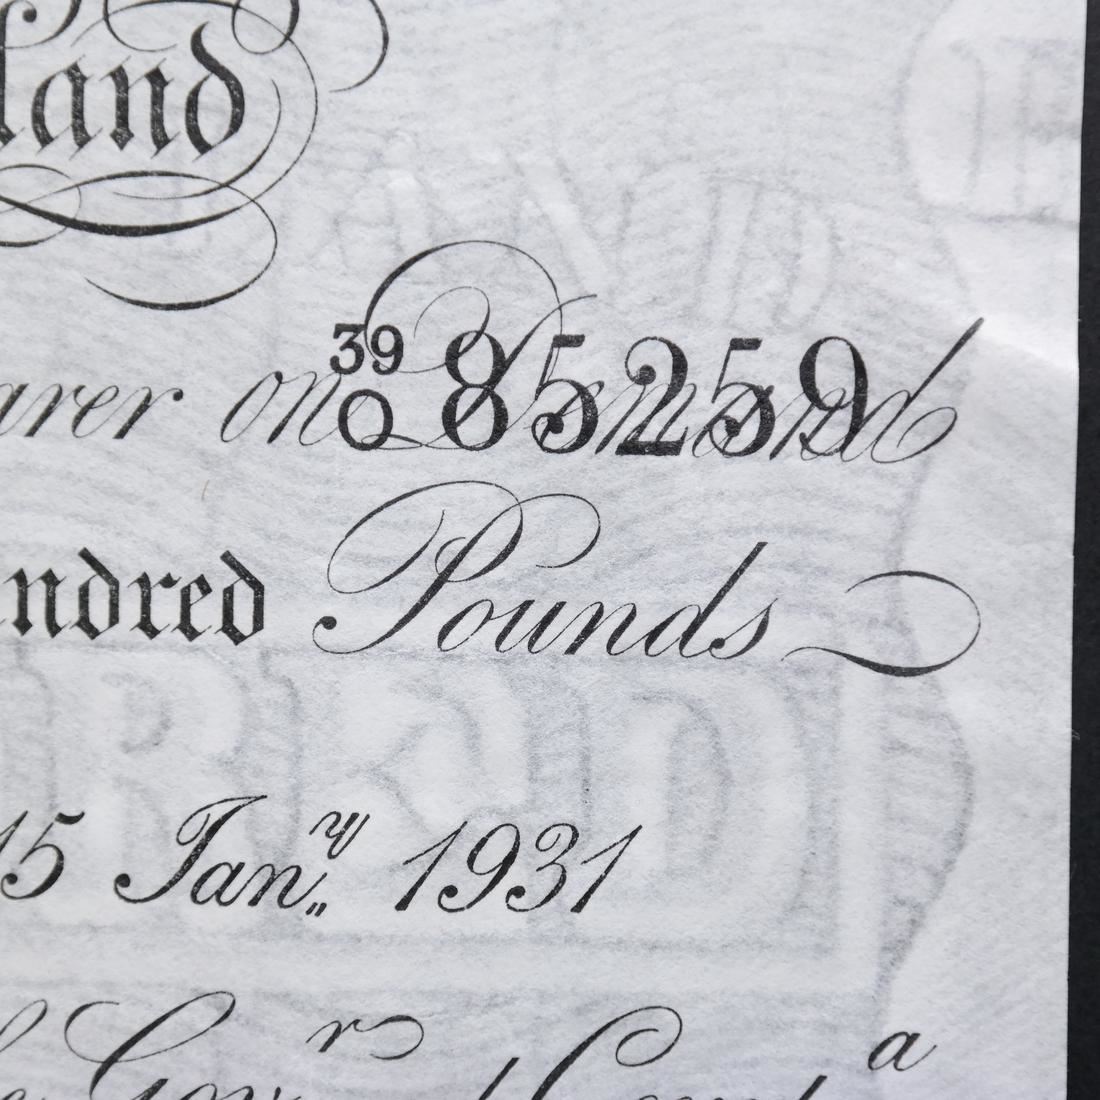 land
39
O 85259
arer on Demand
ndred Pounds
15 Jan.ry 1931
Gov.r
a